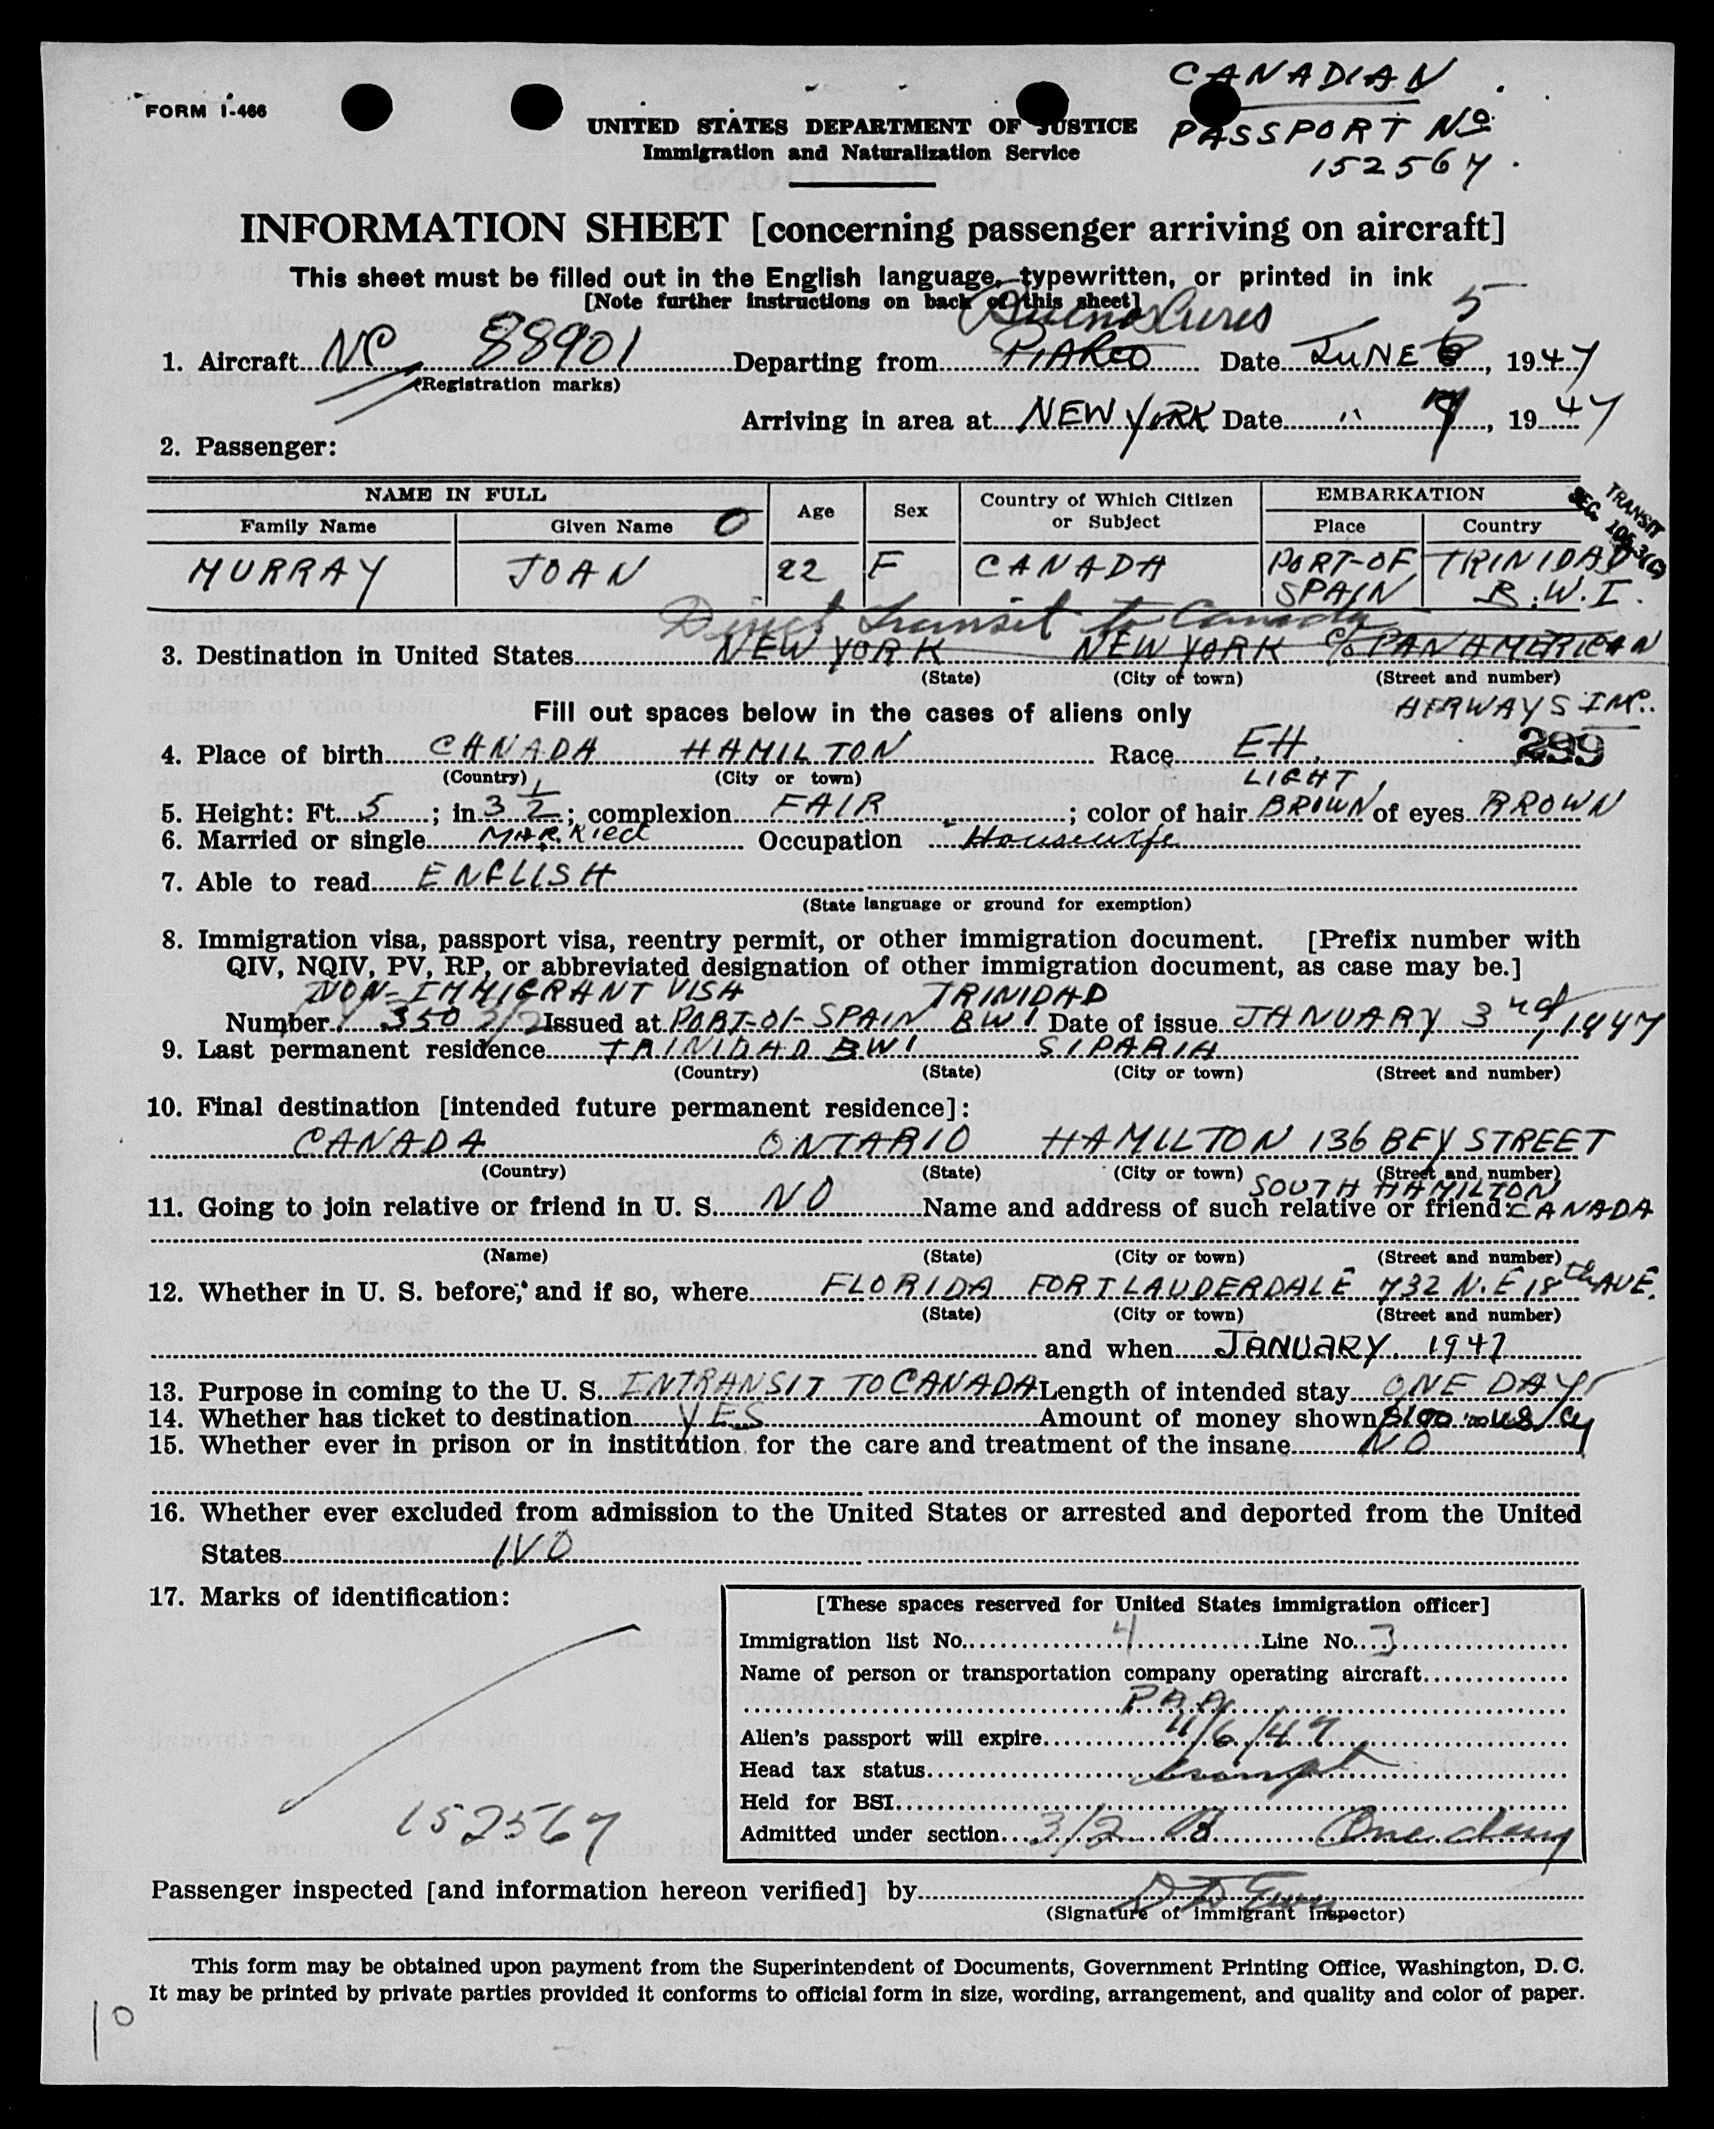 CANADIAN
FORM I-466
UNITED STATES DEPARTMENT OF JUSTICE
PASSPORT No
Immigration and Naturalization Service
152567.
INFORMATION SHEET [concerning passenger arriving on aircraft]
This sheet must be filled out in the English language, typewritten, or printed in ink
[Note further instructions on back of this sheet]
Buenos Aires 5
1. Aircraft NC 88901 Departing from PIARCO Date JUNE 6, 1947
(Registration marks)
Arriving in area at NEW YORK Date " 7, 1947
2. Passenger:
NAME IN FULL Age Sex Country of Which Citizen or Subject EMBARKATION
Family Name Given Name O Place Country
TRANSIT
SEC. 105.3(C)
MURRAY JOAN 22 F CANADA PORT-OF SPAIN TRINIDAD B.W.I.
Direct transit to Canada
3. Destination in United States NEW YORK NEW YORK c/o PAN AMERICAN
(State) (City or town) (Street and number)
Fill out spaces below in the cases of aliens only AIRWAYS INC.
4. Place of birth CANADA HAMILTON Race EH. 299
(Country) (City or town) LIGHT
5. Height: Ft. 5; in 3 1/2; complexion FAIR; color of hair BROWN of eyes BROWN
6. Married or single MARRied Occupation Housewife
7. Able to read ENGLISH
(State language or ground for exemption)
8. Immigration visa, passport visa, reentry permit, or other immigration document. [Prefix number with
QIV, NQIV, PV, RP, or abbreviated designation of other immigration document, as case may be.]
NON-IMMIGRANT VISA TRINIDAD
Number V 350 3/2 Issued at PORT-OF-SPAIN BWI Date of issue JANUARY 3rd, 1947
9. Last permanent residence TRINIDAD BWI SIPARIA
(Country) (State) (City or town) (Street and number)
10. Final destination [intended future permanent residence]:
CANADA ONTARIO HAMILTON 136 BEY STREET
(Country) (State) (City or town) (Street and number)
SOUTH HAMILTON
11. Going to join relative or friend in U. S. NO Name and address of such relative or friend: CANADA
(Name) (State) (City or town) (Street and number)
12. Whether in U. S. before; and if so, where FLORIDA FORT LAUDERDALE 732 N.E 18th AVE.
(State) (City or town) (Street and number)
and when JANUARY 1947
13. Purpose in coming to the U. S. INTRANSIT TO CANADA Length of intended stay ONE DAY
14. Whether has ticket to destination YES Amount of money shown $100.00 US/Cy
15. Whether ever in prison or in institution for the care and treatment of the insane NO
16. Whether ever excluded from admission to the United States or arrested and deported from the United
States NO
17. Marks of identification:
[These spaces reserved for United States immigration officer]
Immigration list No. 4 Line No. 3
Name of person or transportation company operating aircraft
PAA
Alien's passport will expire 11/6/47
Head tax status exempt
Held for BSI
Admitted under section 3/2 One day
152567
Passenger inspected [and information hereon verified] by
(Signature of immigrant inspector)
This form may be obtained upon payment from the Superintendent of Documents, Government Printing Office, Washington, D.C.
It may be printed by private parties provided it conforms to official form in size, wording, arrangement, and quality and color of paper.
10